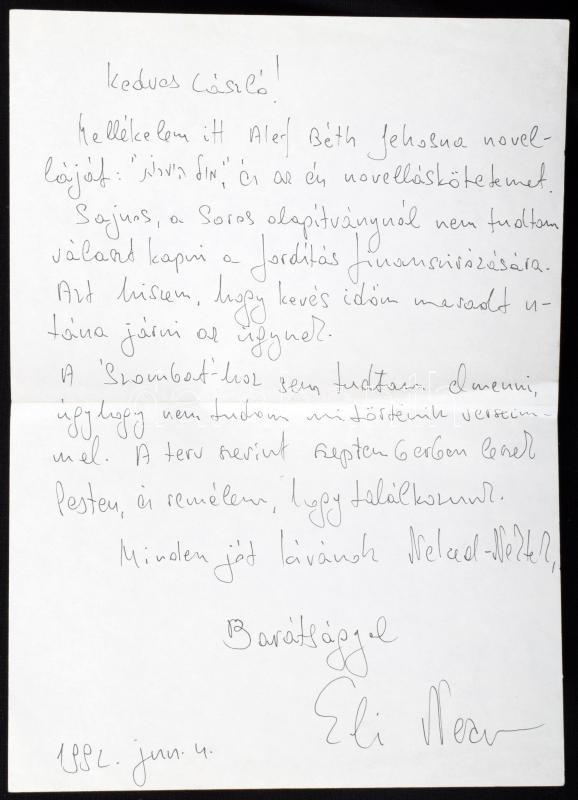 Kedves László!
Mellékelem itt Alef Béth Jehosua novel-
láját: "מול היערות", és az én novelláskötetemet.
Sajnos, a Soros alapítványnál nem tudtam
választ kapni a fordítás finanszirozására.
Azt hiszem, hogy kevés időm maradt u-
tána járni az ügynek.
A "Szombat"-hoz sem tudtam elmenni,
úgyhogy nem tudom mi történik verseim-
mel. A terv szerint szeptemberben leszek
Pesten, és remélem, hogy találkozunk.
Minden jót kívánok Neked-Nektek,
Barátsággal
Eli
1992. jun. 4.